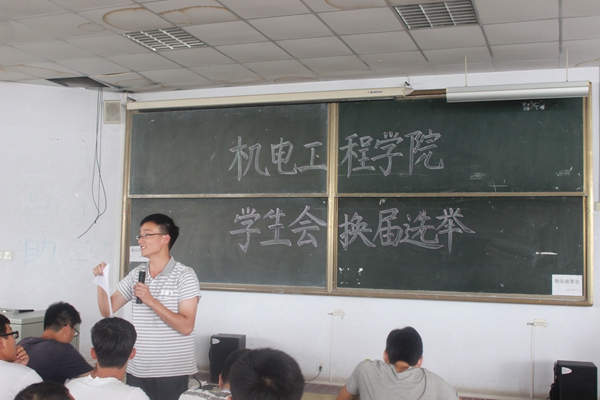 机电工程学院
学生会换届选举